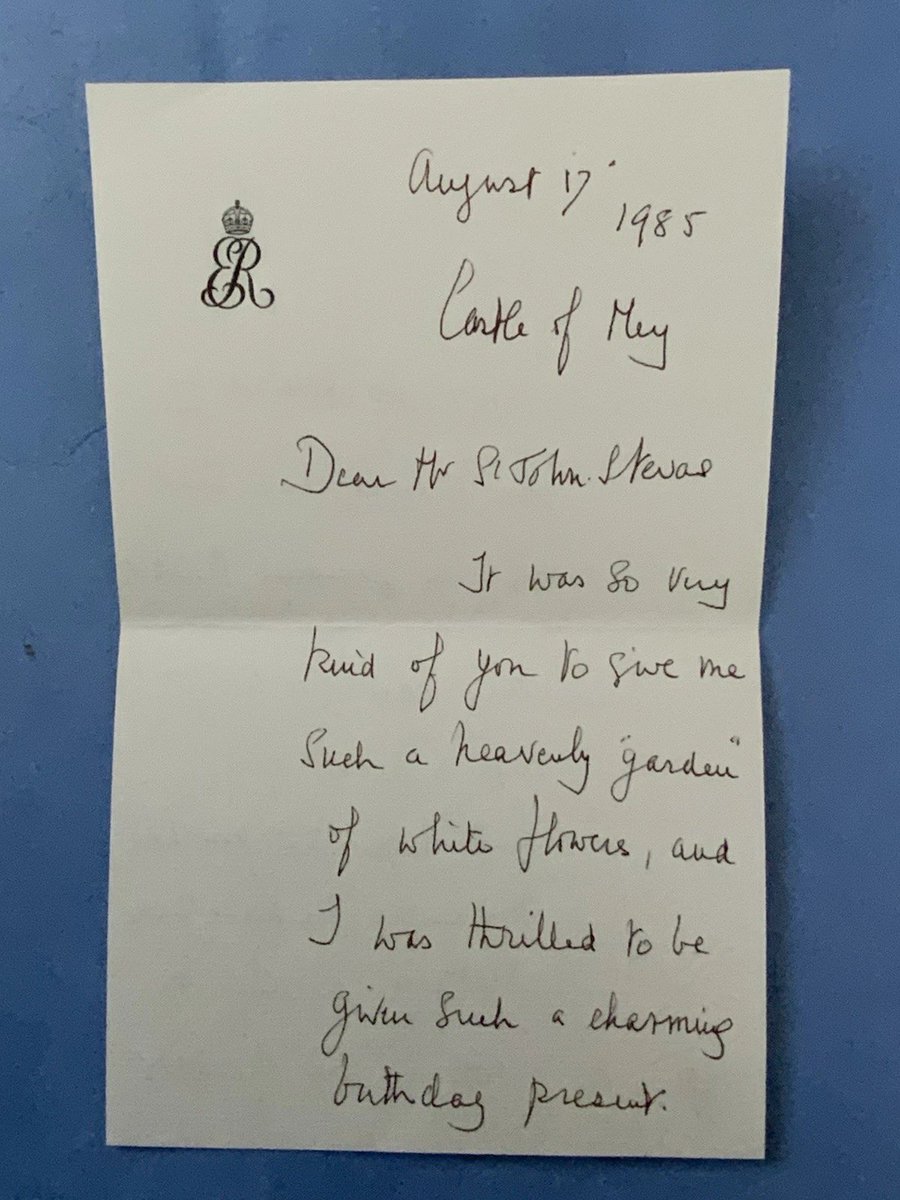 ER
August 17
1985
Castle of Mey
Dear Mr St John. Stevas
It was so very
kind of you to give me
such a heavenly "garden"
of white flowers, and
I was thrilled to be
given such a charming
birthday present.